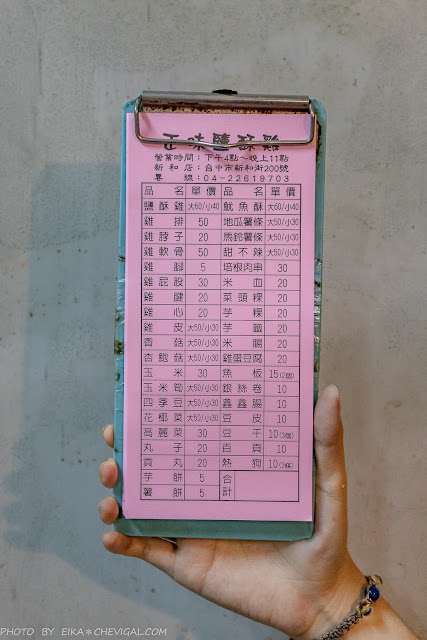 正味鹽酥雞
營業時間:下午4點～晚上11點
新和店:台中市新和街200號
專線:04-22619703
品名 單價 品名 單價
鹽酥雞 大60/小40 魷魚酥 大60/小40
雞排 50 地瓜薯條 大50/小30
雞脖子 20 馬鈴薯條 大50/小30
雞軟骨 50 甜不辣 大50/小30
雞腳 5 培根肉串 30
雞屁股 30 米血 20
雞腱 20 菜頭粿 20
雞心 20 芋粿 20
雞皮 大50/小30 芋籤 20
香菇 大50/小30 米腸 20
杏鮑菇 大50/小30 雞蛋豆腐 20
玉米 30 魚板 15(2個)
玉米筍 大50/小30 銀絲卷 10
四季豆 大50/小30 鑫鑫腸 10
花椰菜 大50/小30 豆皮 10
高麗菜 30 豆干 10(3個)
丸子 20 百頁 10
貢丸 20 熱狗 10(3條)
芋餅 5 合計
薯餅 5
PHOTO BY EIKA＊CHEVIGAL.COM